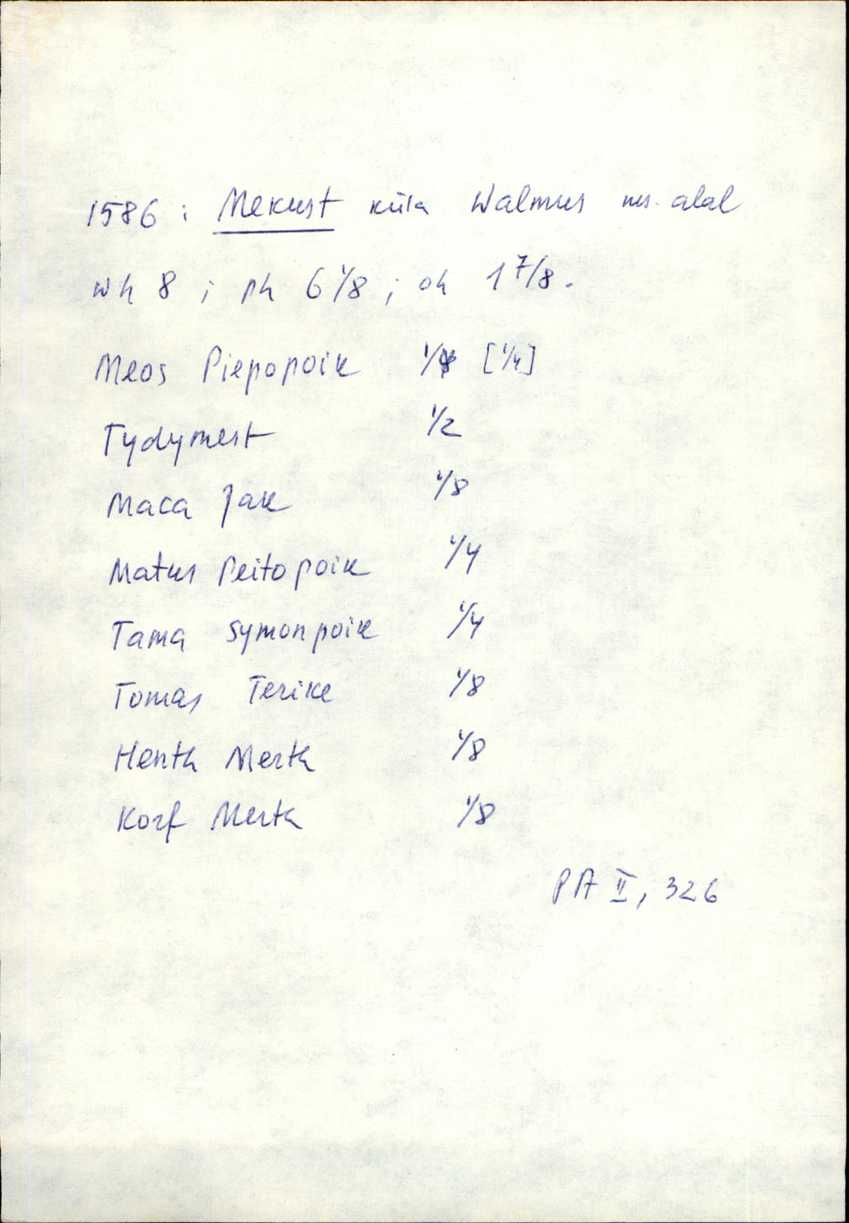 1586: Mekust küla Walmus ms. alal
wh 8; ph 6 1/8; oh 1 7/8.
Meos Piepopoik 1/4 [1/4]
Tydymest 1/2
Maca Jak 1/8
Matus Peitopoik 1/4
Tama Symonpoik 1/4
Tomas Terike 1/8
Henth Merth 1/8
Korf Merth 1/8
PA II, 326